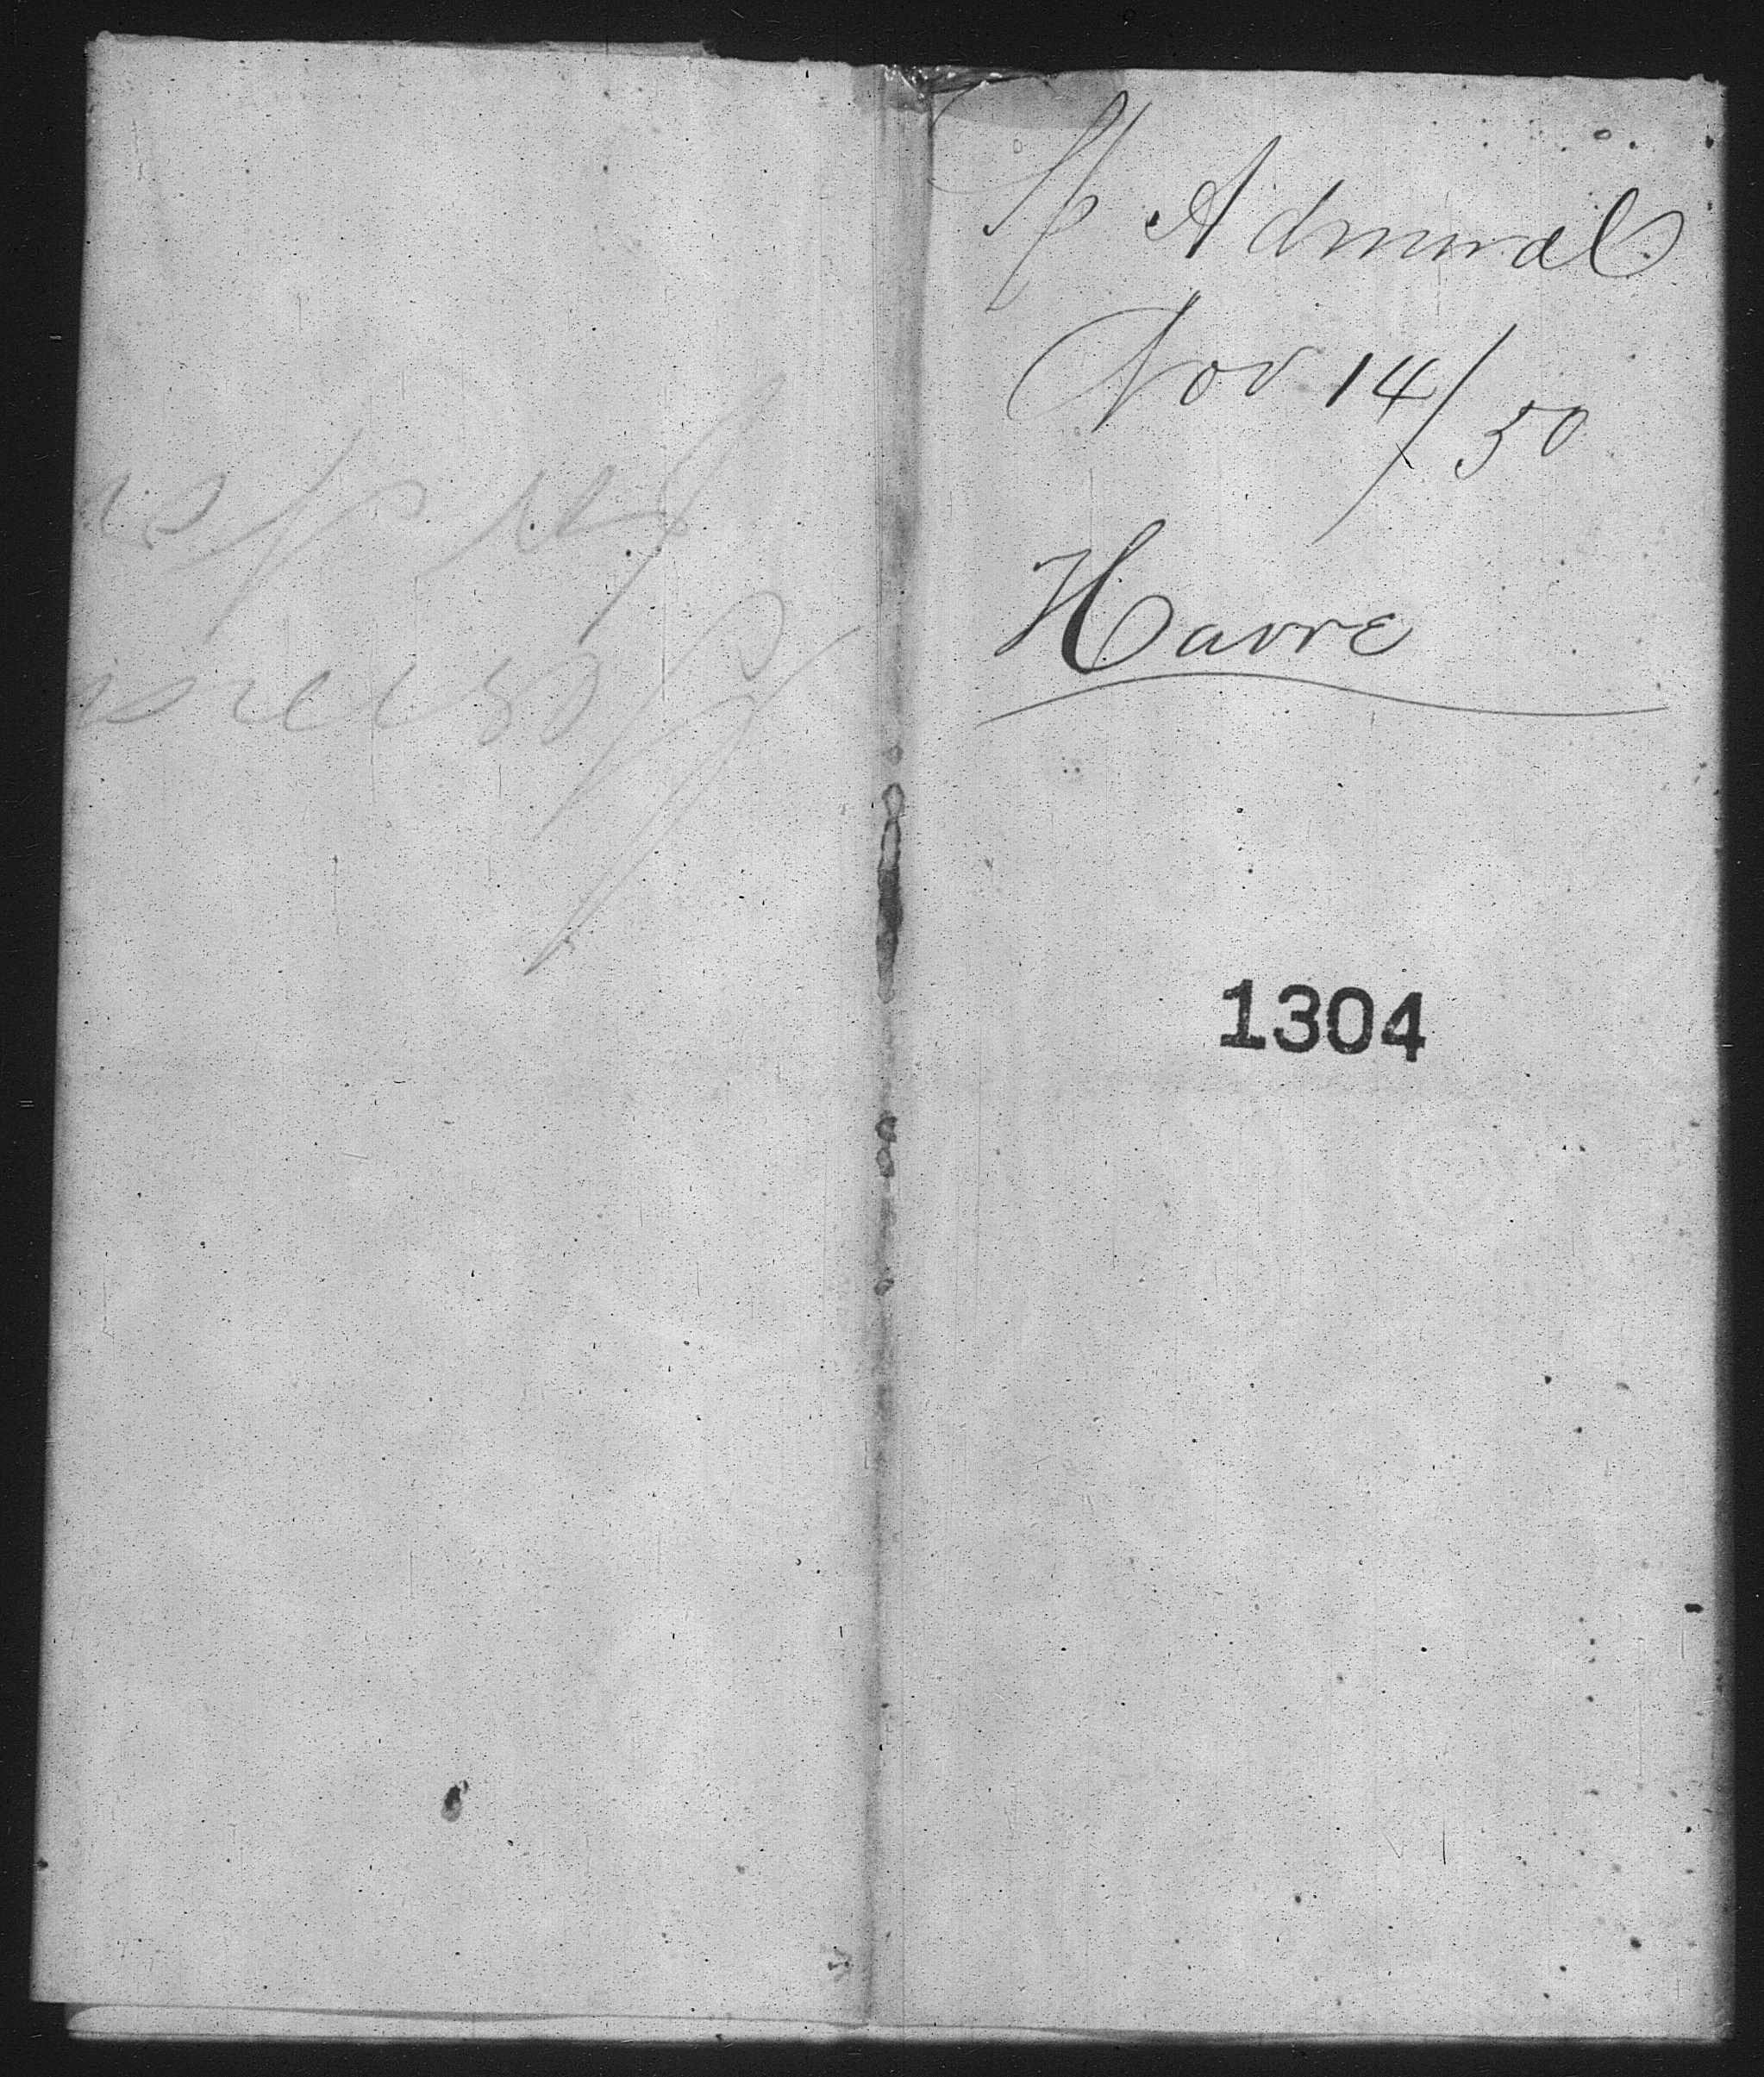 Sp Admiral
Nov 14/50
Havre
1304